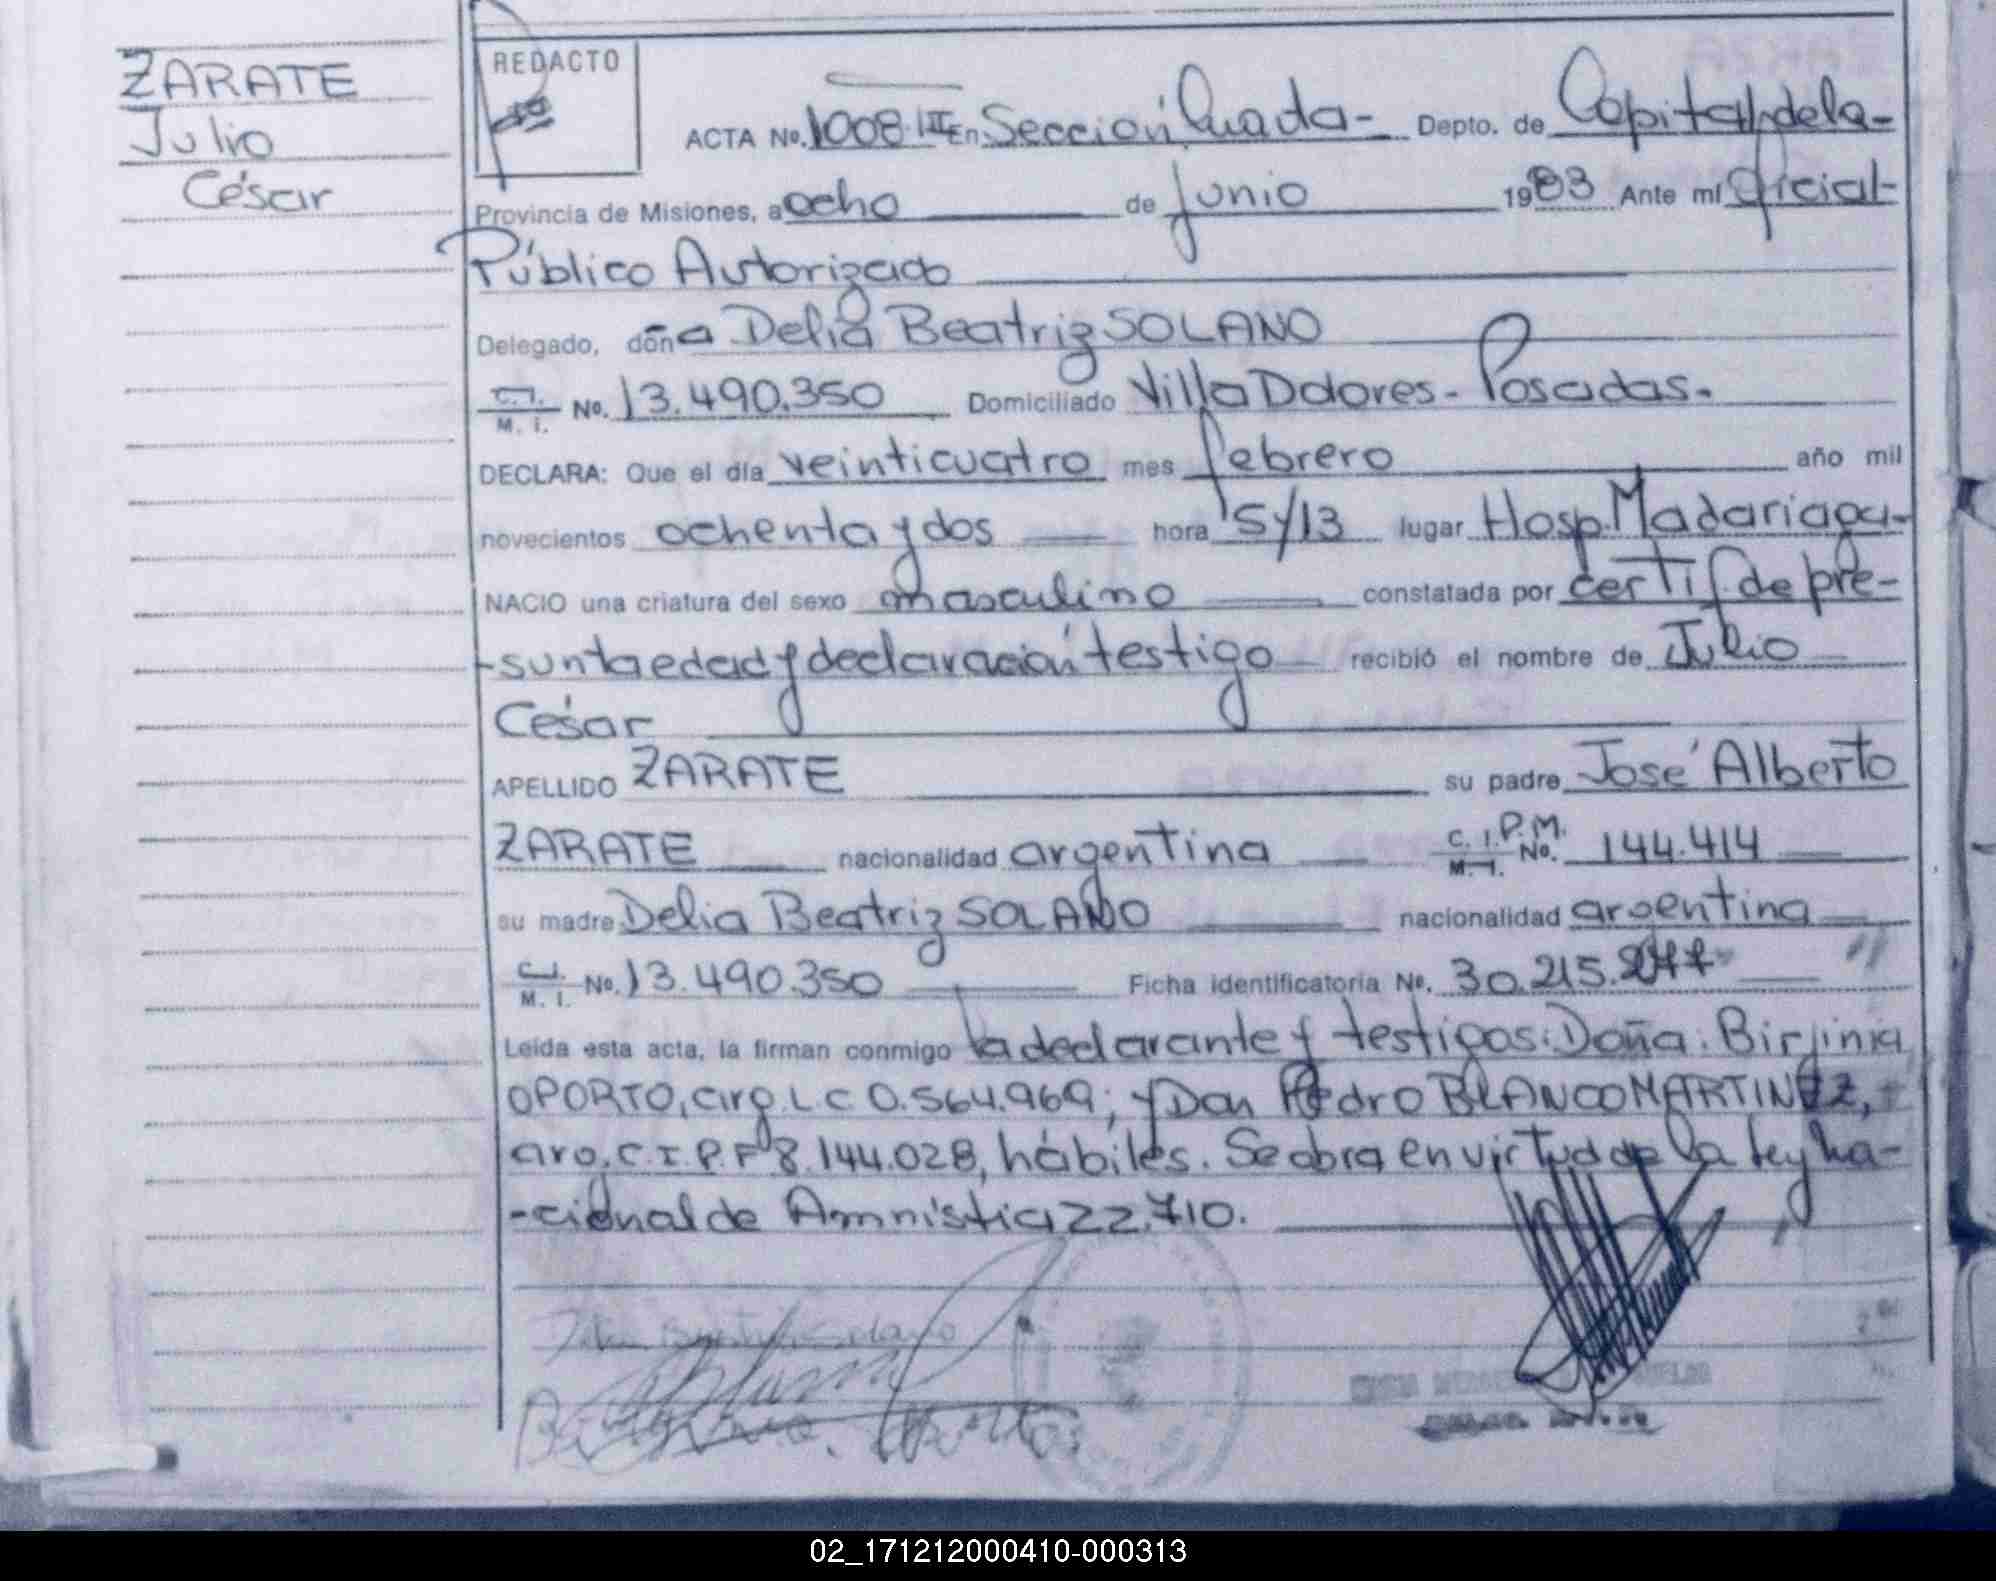 ZARATE
Julio
César
REDACTO
ACTA No. 1008·III En Sección Cuarta- Depto. de Capital, de la-
Provincia de Misiones, a ocho de junio 1983 Ante mí Oficial-
Público Autorizado
Delegado, doña Delia Beatriz SOLANO
C.I. M. I. No. 13.490.350 Domiciliado Villa Dolores- Posadas.
DECLARA: Que el día veinticuatro mes febrero año mil
novecientos ochenta y dos hora 5y13 lugar Hosp. Madariaga-
NACIO una criatura del sexo masculino constatada por certif de pre-
-sunta edad y declaración testigo recibió el nombre de Julio
César
APELLIDO ZARATE su padre José Alberto
ZARATE nacionalidad argentina C. I. P.M. M. I. No. 144.414
su madre Delia Beatriz SOLANO nacionalidad argentina
C.I. M. I. No. 13.490.350 Ficha identificatoria No. 30.215.
Leída esta acta, la firman conmigo la declarante y testigos: Doña: Birjinia
OPORTO, arg. L C 0.564.969; y Don Pedro BLANCO MARTINEZ,
arg. C.I.P.F 8.144.028, hábiles. Se obra en virtud de la ley na-
-cional de Amnistia 22.710.
02_171212000410-000313